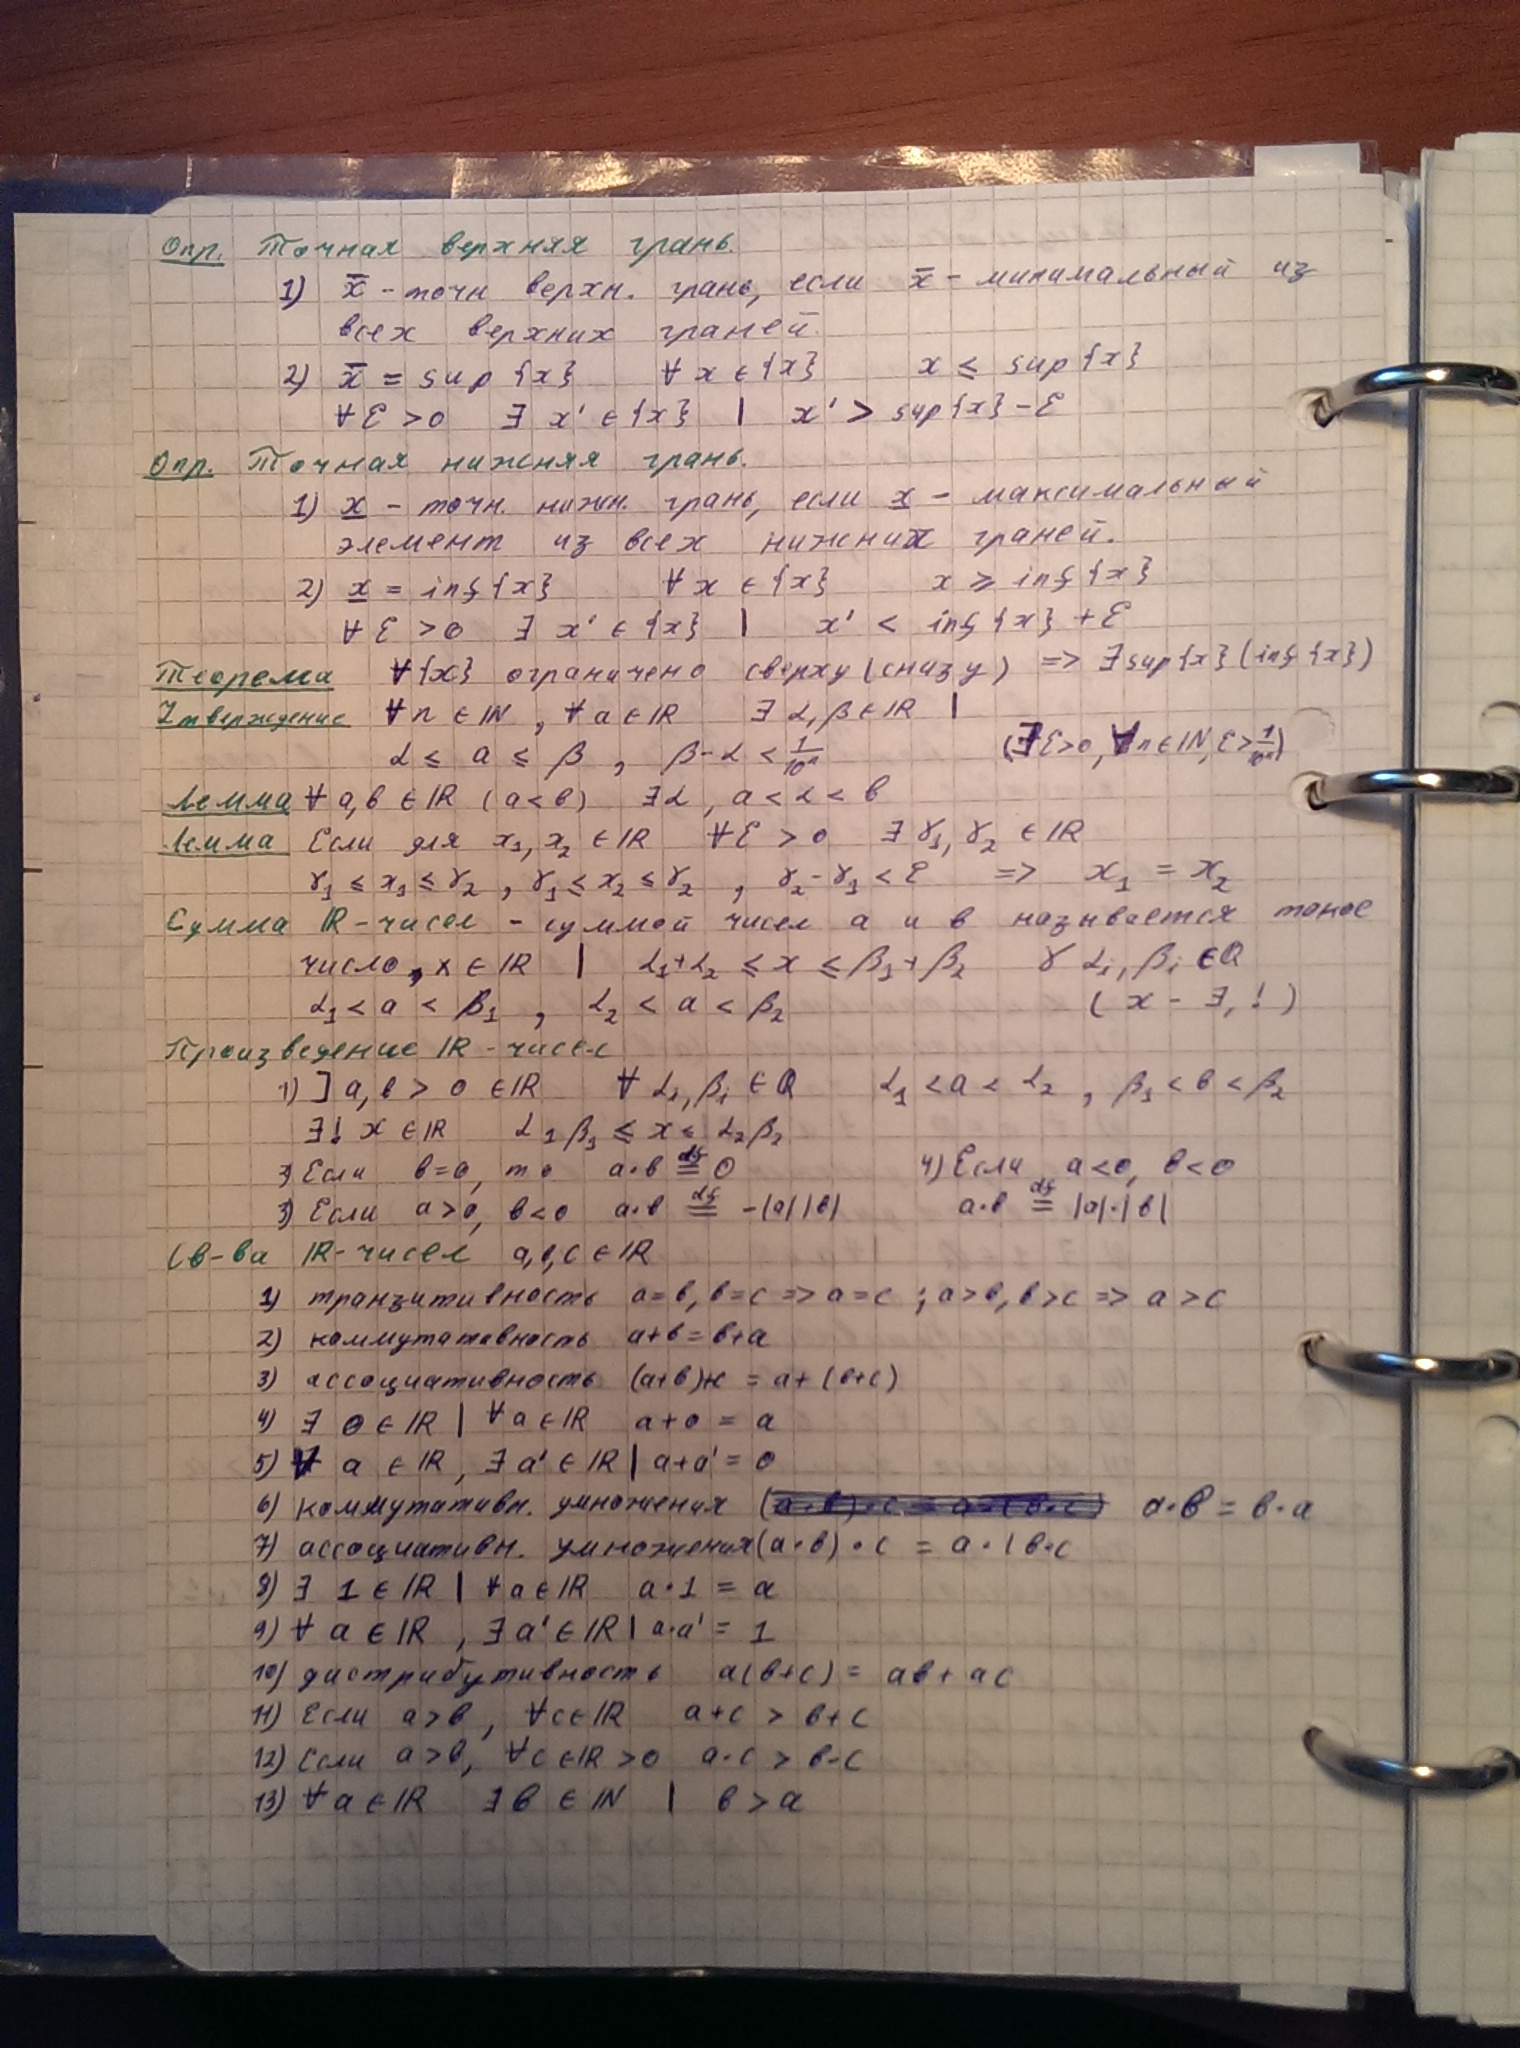 Опр. Точная верхняя грань.
1) x̅ - точн верхн. грань, если x̅ - минимальный из
всех верхних граней.
2) x̅ = sup {x} ∀ x ∈ {x} x ⩽ sup {x}
∀ ε > 0 ∃ x' ∈ {x} | x' > sup{x} - ε
Опр. Точная нижняя грань.
1) x̲ - точн. нижн. грань, если x̲ - максимальный
элемент из всех нижних граней.
2) x̲ = inf {x} ∀ x ∈ {x} x ⩾ inf {x}
∀ ε > 0 ∃ x' ∈ {x} | x' < inf {x} + ε
Теорема ∀{x} ограничено сверху (снизу) => ∃ sup{x} (inf {x})
Утверждение ∀ n ∈ ℕ, ∀ a ∈ ℝ ∃ α, β ∈ ℝ |
α ⩽ a ⩽ β, β - α < 1/10ⁿ (∃ ε>0, ∀ n ∈ ℕ, ε > 1/10ⁿ)
Лемма ∀ a, b ∈ ℝ (a < b) ∃ α, a < α < b
Лемма Если для x₁, x₂ ∈ ℝ ∀ ε > 0 ∃ γ₁, γ₂ ∈ ℝ
γ₁ ⩽ x₁ ⩽ γ₂, γ₁ ⩽ x₂ ⩽ γ₂, γ₂ - γ₁ < ε => x₁ = x₂
Сумма ℝ - чисел - суммой чисел a и b называется такое
число, x ∈ ℝ | α₁ + α₂ ⩽ x ⩽ β₁ + β₂ γ αᵢ, βᵢ ∈ ℚ
α₁ < a < β₁, α₂ < a < β₂ (x - ∃, !)
Произведение ℝ - чисел
1) ] a, b > 0 ∈ ℝ ∀ αᵢ, βᵢ ∈ ℚ α₁ < a < α₂, β₁ < b < β₂
∃! x ∈ ℝ α₁β₁ ⩽ x ⩽ α₂β₂
3) Если b = 0, то a·b ≝ 0 4) Если a < 0, b < 0
3) Если a > 0, b < 0 a·b ≝ -|a| |b| a·b ≝ |a|·|b|
Св-ва ℝ - чисел a, b, c ∈ ℝ
1) транзитивность a = b, b = c => a = c ; a > b, b > c => a > c
2) коммутативность a + b = b + a
3) ассоциативность (a+b)+c = a + (b+c)
4) ∃ 0 ∈ ℝ | ∀ a ∈ ℝ a + 0 = a
5) ∀ a ∈ ℝ, ∃ a' ∈ ℝ | a + a' = 0
6) коммутативн. умножения a·b = b·a
7) ассоциативн. умножения (a·b)·c = a·(b·c
8) ∃ 1 ∈ ℝ | ∀ a ∈ ℝ a·1 = a
9) ∀ a ∈ ℝ, ∃ a' ∈ ℝ | a·a' = 1
10) дистрибутивность a(b+c) = ab + ac
11) Если a > b, ∀ c ∈ ℝ a + c > b + c
12) Если a > b, ∀ c ∈ ℝ > 0 a·c > b·c
13) ∀ a ∈ ℝ ∃ b ∈ ℕ | b > a